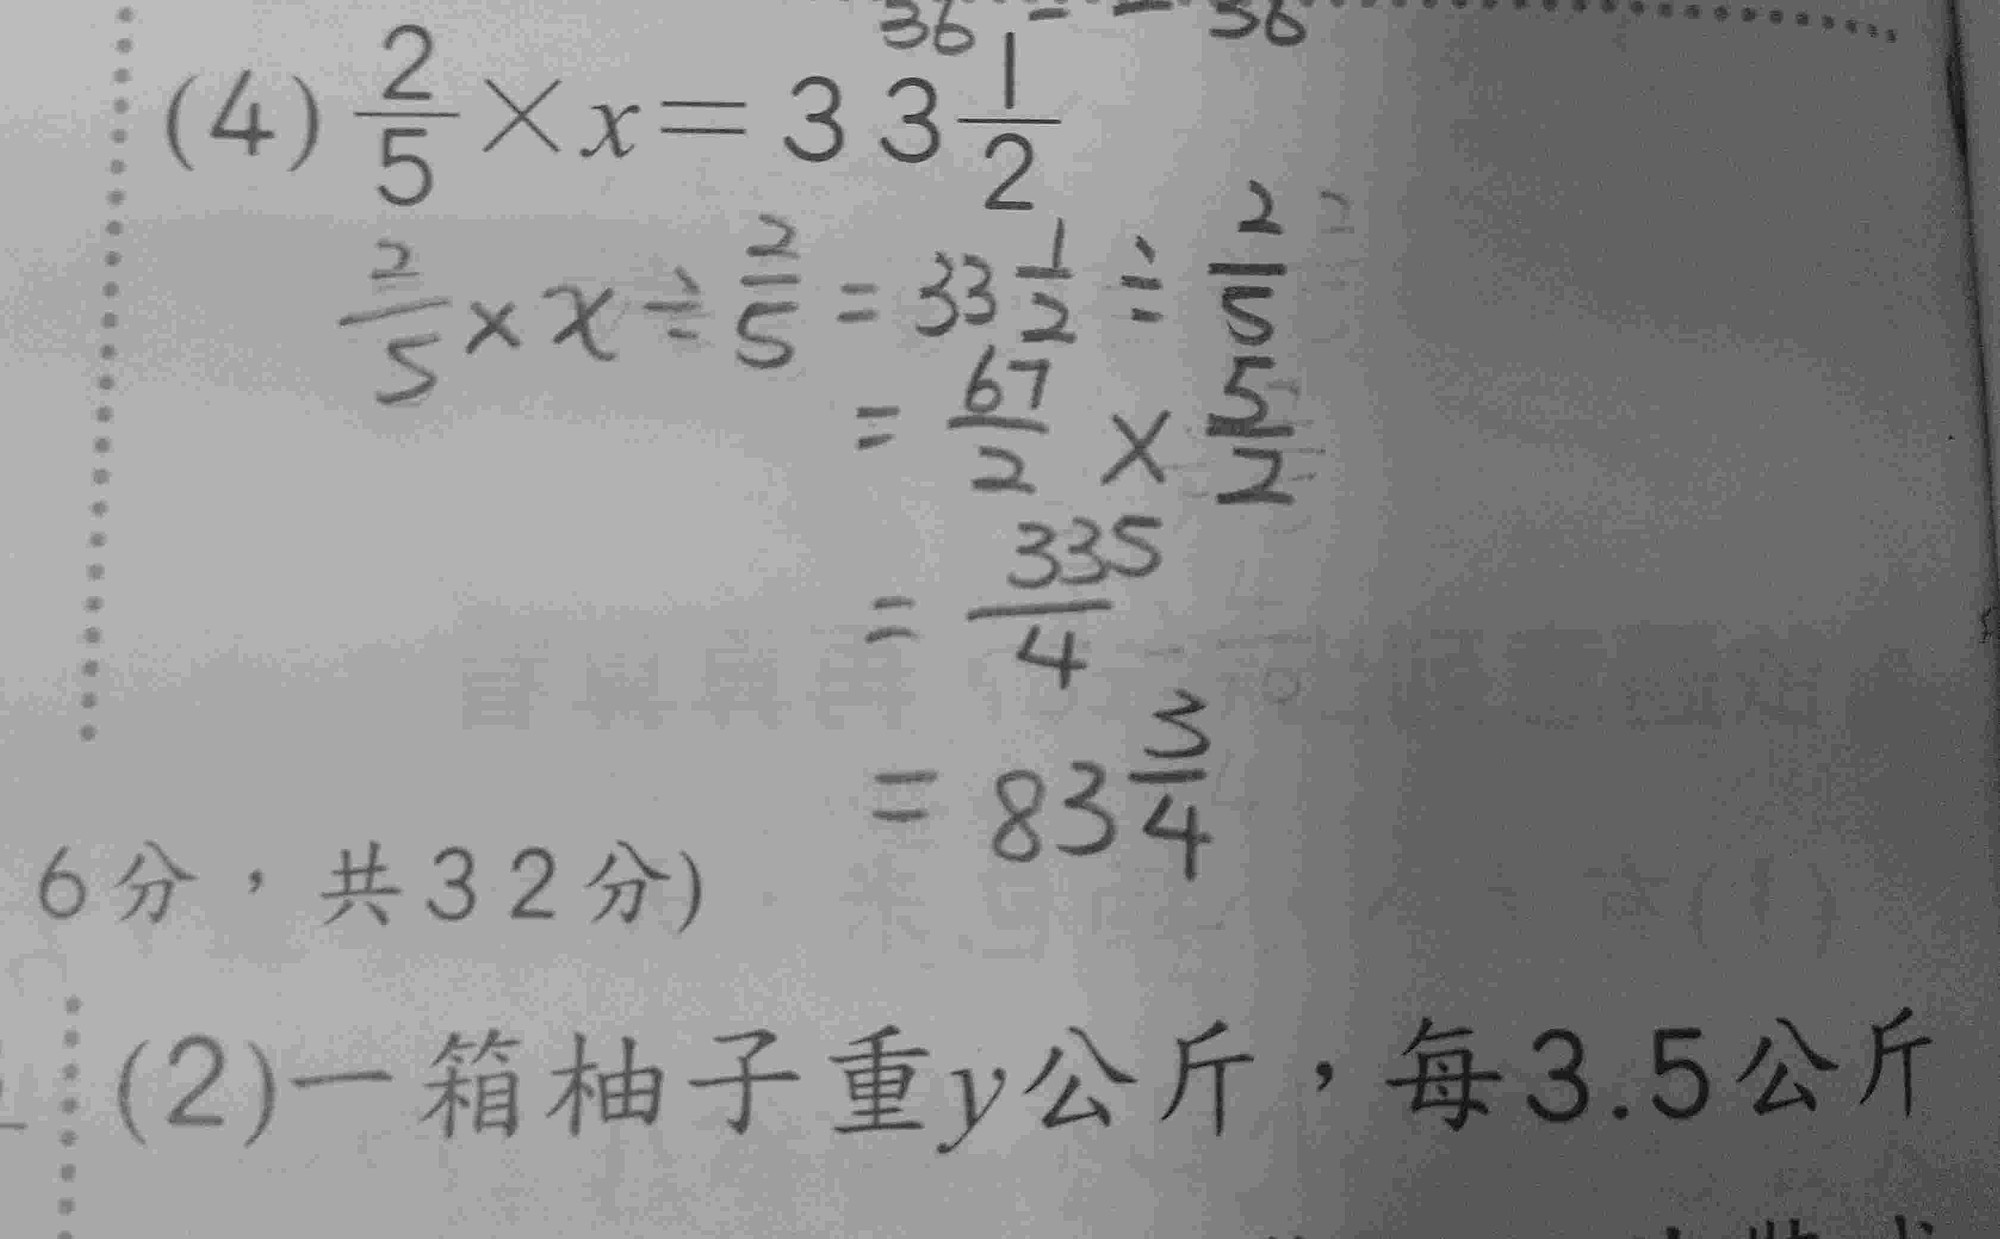 36 = - 36
(4) 2/5 × x = 33 1/2
2/5 × x ÷ 2/5 = 33 1/2 ÷ 2/5
= 67/2 × 5/2
= 335/4
= 83 3/4
6分，共32分)
(2)一箱柚子重y公斤，每3.5公斤